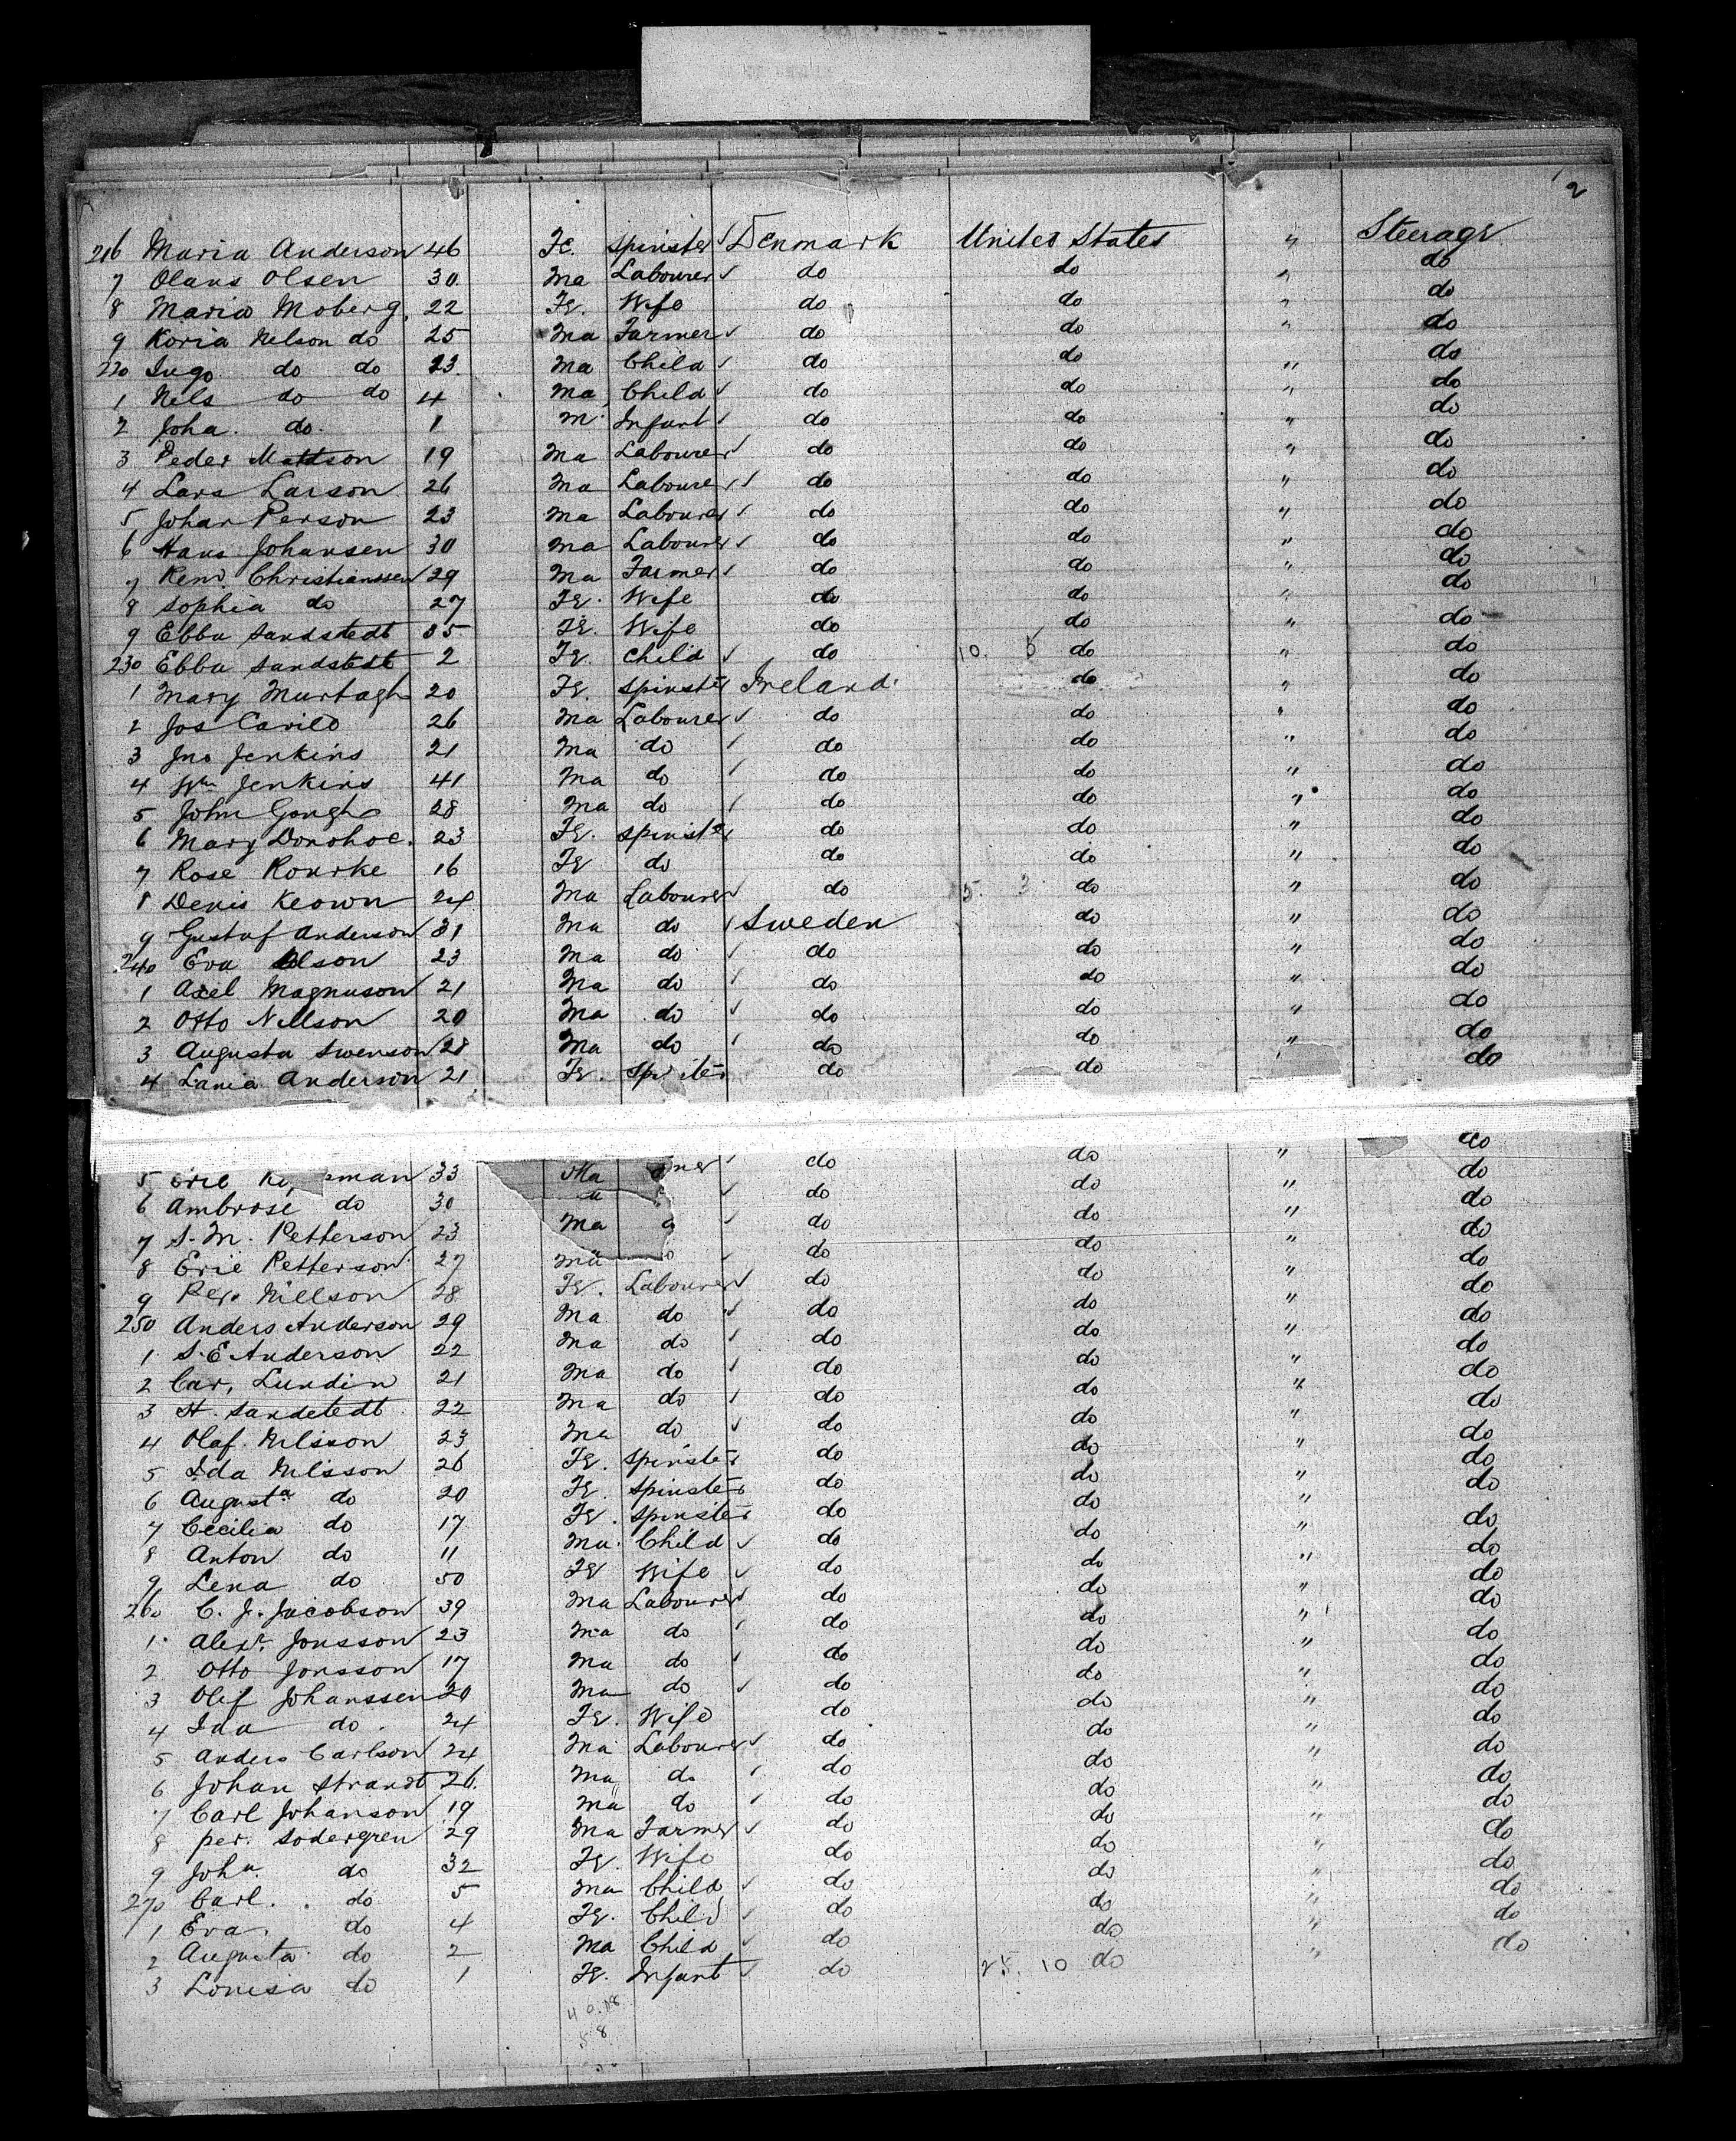 2
216 Maria Anderson 46 Fe. Spinster ✓ Denmark United States " Steerage
7 Olaus Olsen 30 Ma Labourer ✓ do do " do
8 Maria Moberg 22 Fe. Wife do do " do
9 Koria Nelson do 25 Ma Farmer ✓ do do " do
220 Ingo do do 23 Ma Child ✓ do do " do
1 Nels do do 4 Ma Child ✓ do do " do
2 Joha. do 1 M Infant ✓ do do " do
3 Peder Mattson 19 Ma Labourer ✓ do do " do
4 Lars Larson 26 Ma Labourer ✓ do do " do
5 Johan Person 23 Ma Labourer ✓ do do " do
6 Hans Johansen 30 Ma Labourer ✓ do do " do
7 Christianssen 29 Ma Farmer ✓ do do " do
8 Sophia do 27 Fe. Wife do do " do
9 Ebba Sandstedt 35 Fe. Wife do do " do
230 Ebba Sandstedt 2 Fe. Child ✓ do 10. 5 do " do
1 Mary Murtagh 20 Fe. Spinster Ireland do " do
2 Jos 26 Ma Labourer ✓ do do " do
3 Jno Jenkins 21 Ma do ✓ do do " do
4 Wm Jenkins 41 Ma do ✓ do do " do
5 John Gough 28 Ma do ✓ do do " do
6 Mary Donohoe. 23 Fe. Spinster do do " do
7 Rose Rourke 16 Fe do do do " do
8 Denis Keown 24 Ma Labourer ✓ do 5. 3 do " do
9 Gustaf Anderson 31 Ma do ✓ Sweden do " do
240 Eva Olson 23 Ma do ✓ do do " do
1 Axel Magnuson 21 Ma do ✓ do do " do
2 Otto Nellson 20 Ma do ✓ do do " do
3 Augusta Swenson 28 Ma do ✓ do do " do
4 Lania Anderson 21 Fe. do do do
5 Eric man 33 Ma ✓ do do " do
6 Ambrose do 30 ✓ do do " do
7 S. M. Petterson 23 Ma ✓ do do " do
8 Eric Petterson 27 Ma ✓ do do " do
9 Per. Nillson 28 Fe. Labourer ✓ do do " do
250 Anders Anderson 29 Ma do ✓ do do " do
1 S. E Anderson 22 Ma do ✓ do do " do
2 Car. Lundin 21 Ma do ✓ do do " do
3 H. Sandstedt 22 Ma do ✓ do do " do
4 Olaf. Nilsson 23 Ma do ✓ do do " do
5 Ida Nilsson 26 Fe. Spinster do do " do
6 Augusta do 20 Fe. Spinster do do " do
7 Cecilia do 17 Fe. Spinster do do " do
8 Anton do 11 Ma. Child ✓ do do " do
9 Lena do 50 Fe Wife ✓ do do " do
260 C. J. Jacobson 39 Ma Labourer ✓ do do " do
1 Alexr. Jonsson 23 Ma do ✓ do do " do
2 Otto Jonsson 17 Ma do ✓ do do " do
3 Olif Johanssen 20 Ma do ✓ do do " do
4 Ida do. 24 Fe. Wife do do " do
5 Anders Carlson 24 Ma Labourer ✓ do do " do
6 Johan Strandt 26 Ma do ✓ do do " do
7 Carl Johanson 19 Ma do ✓ do do " do
8 per. Sodergren 29 Ma Farmer ✓ do do " do
9 Joha. do 32 Fe. Wife do do " do
270 Carl. do 5 Ma Child ✓ do do " do
1 Eva. do 4 Fe. Child ✓ do do " do
2 Augusta do 2 Ma Child ✓ do do " do
3 Louisa do 1 Fe. Infant ✓ do 25. 10 do